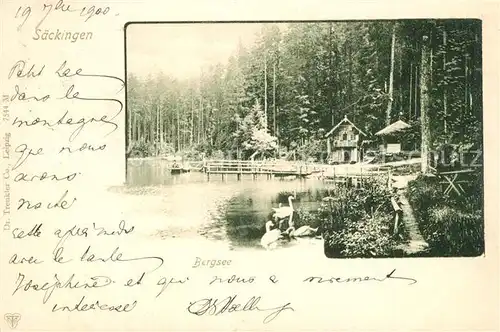 19 7bre 1900
Säckingen
Petit lac
dans la
montagne
que nous
avons
visité
cette après midi
avec la tante
Joséphine et qui nous a vivement
interessé
Bergsee
Dr. Trenkler Co., Leipzig 7544 M